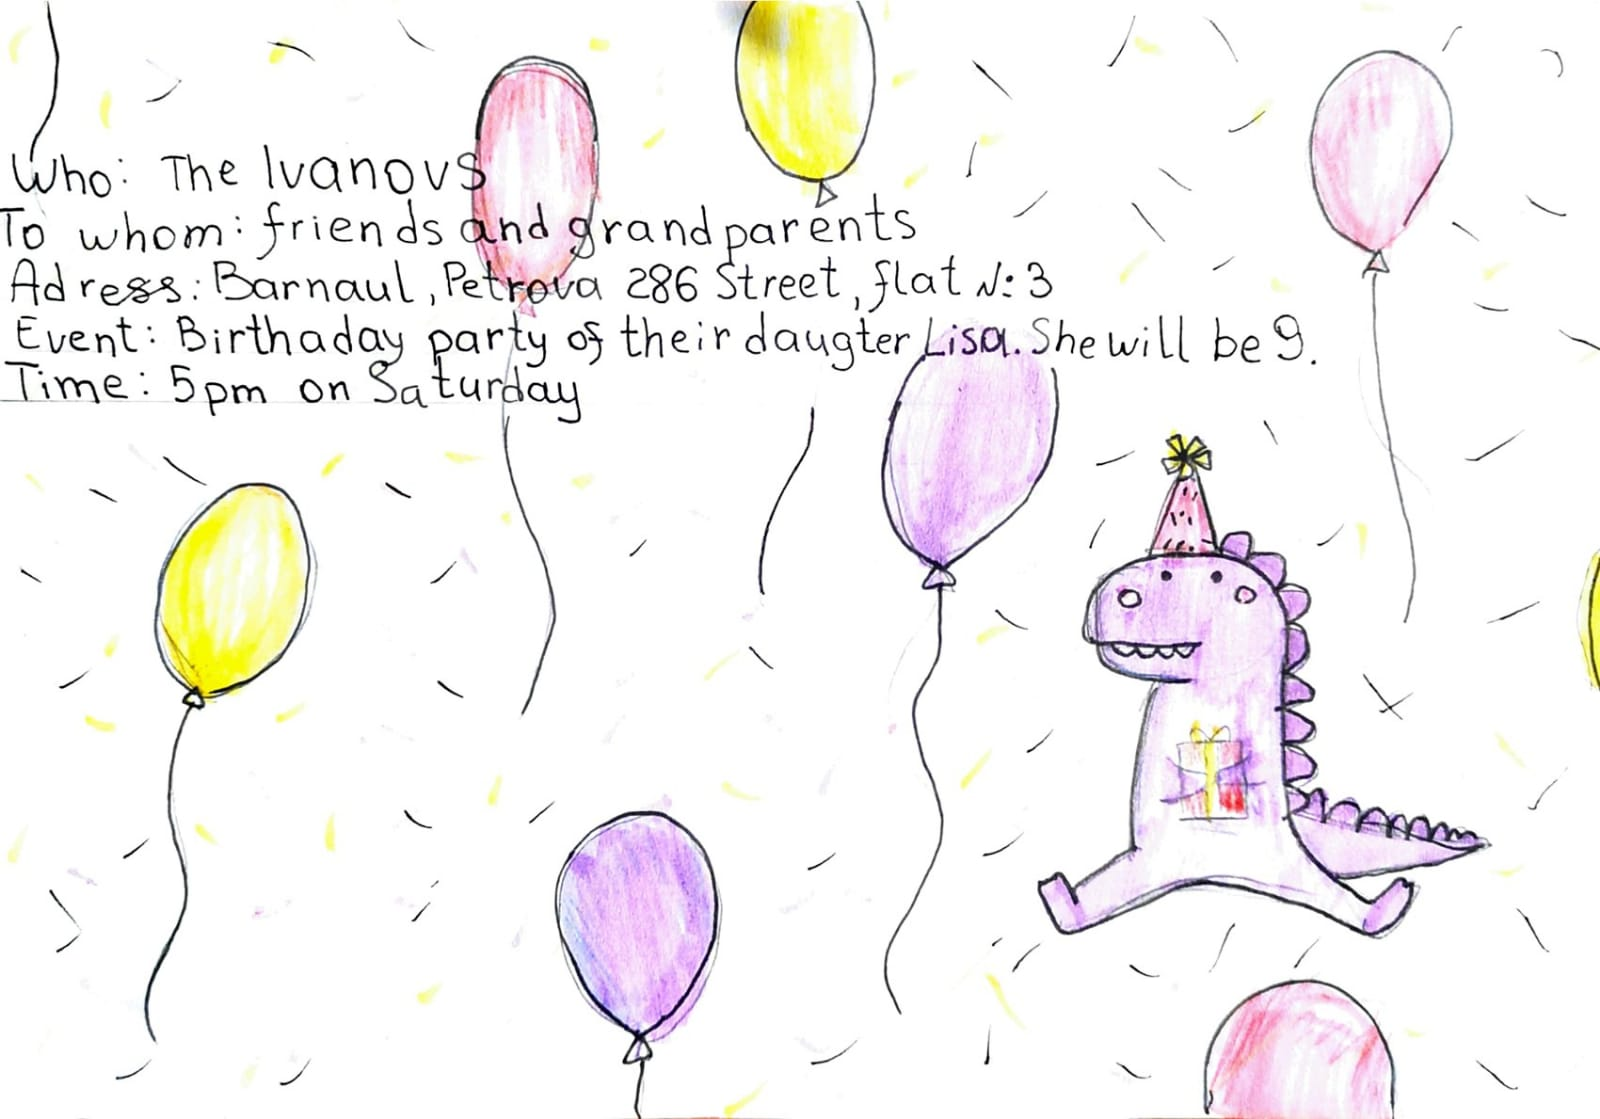 Who: The Ivanovs
To whom: friends and grandparents
Adress: Barnaul, Petrova 286 Street, flat №: 3
Event: Birthaday party of their daugter Lisa. She will be 9.
Time: 5pm on Saturday